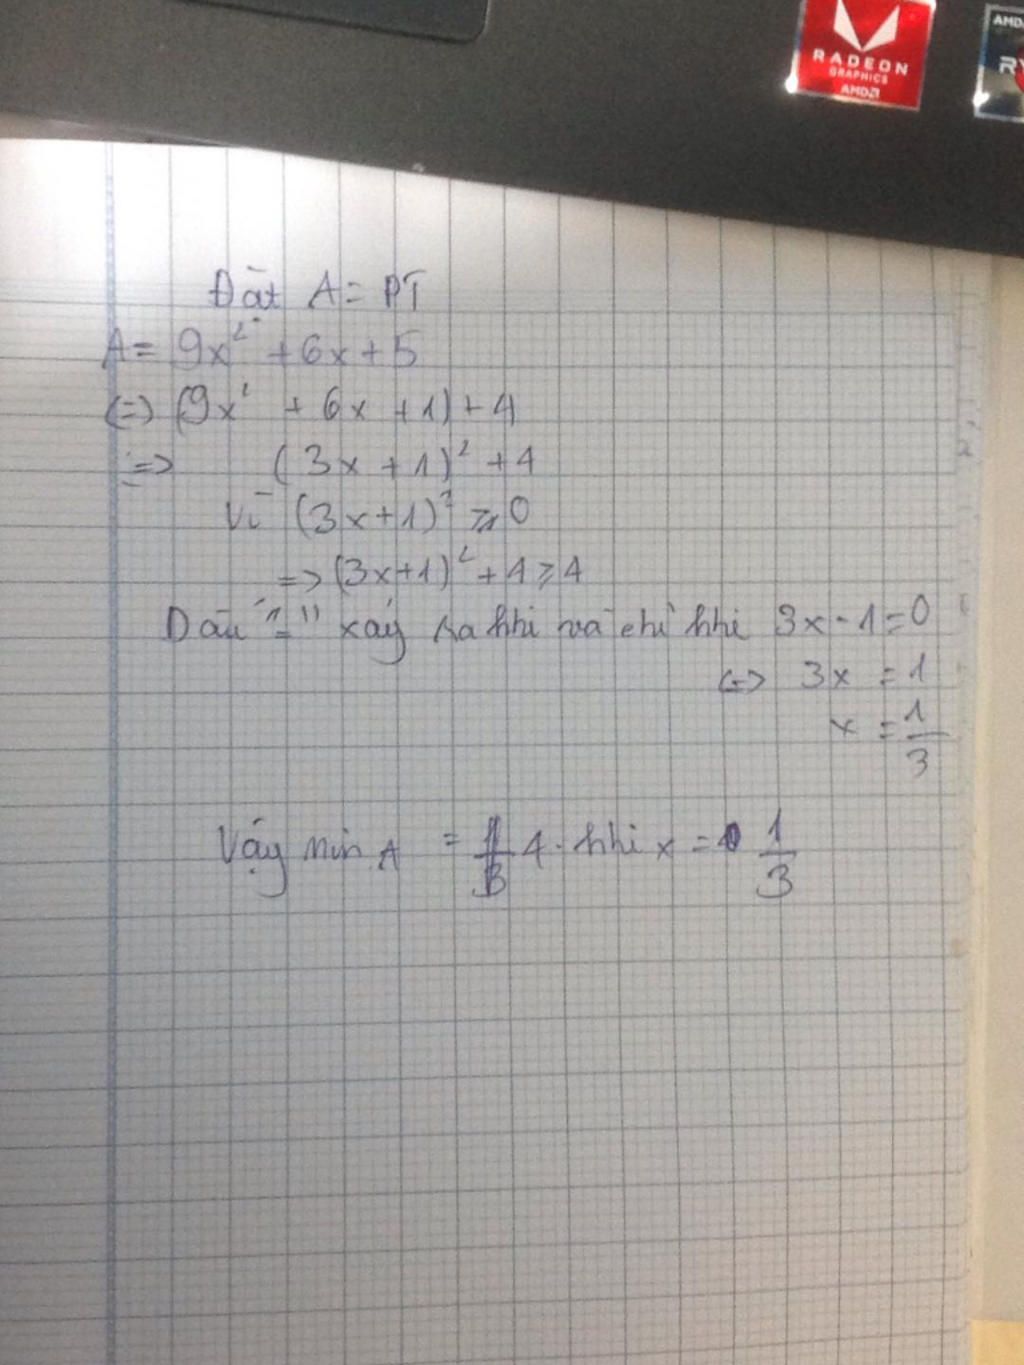 RADEON
GRAPHICS
AMD
AMD
RY
Đặt A = PT
A = 9x² + 6x + 5
(=) (9x² + 6x + 1) + 4
=> (3x + 1)² + 4
Vì (3x+1)² ≥ 0
=> (3x+1)² + 4 ≥ 4
Dấu "=" xảy ra khi và chỉ khi 3x - 1 = 0
<=> 3x = 1
x = 1/3
Vậy min A = 4 khi x = 1/3